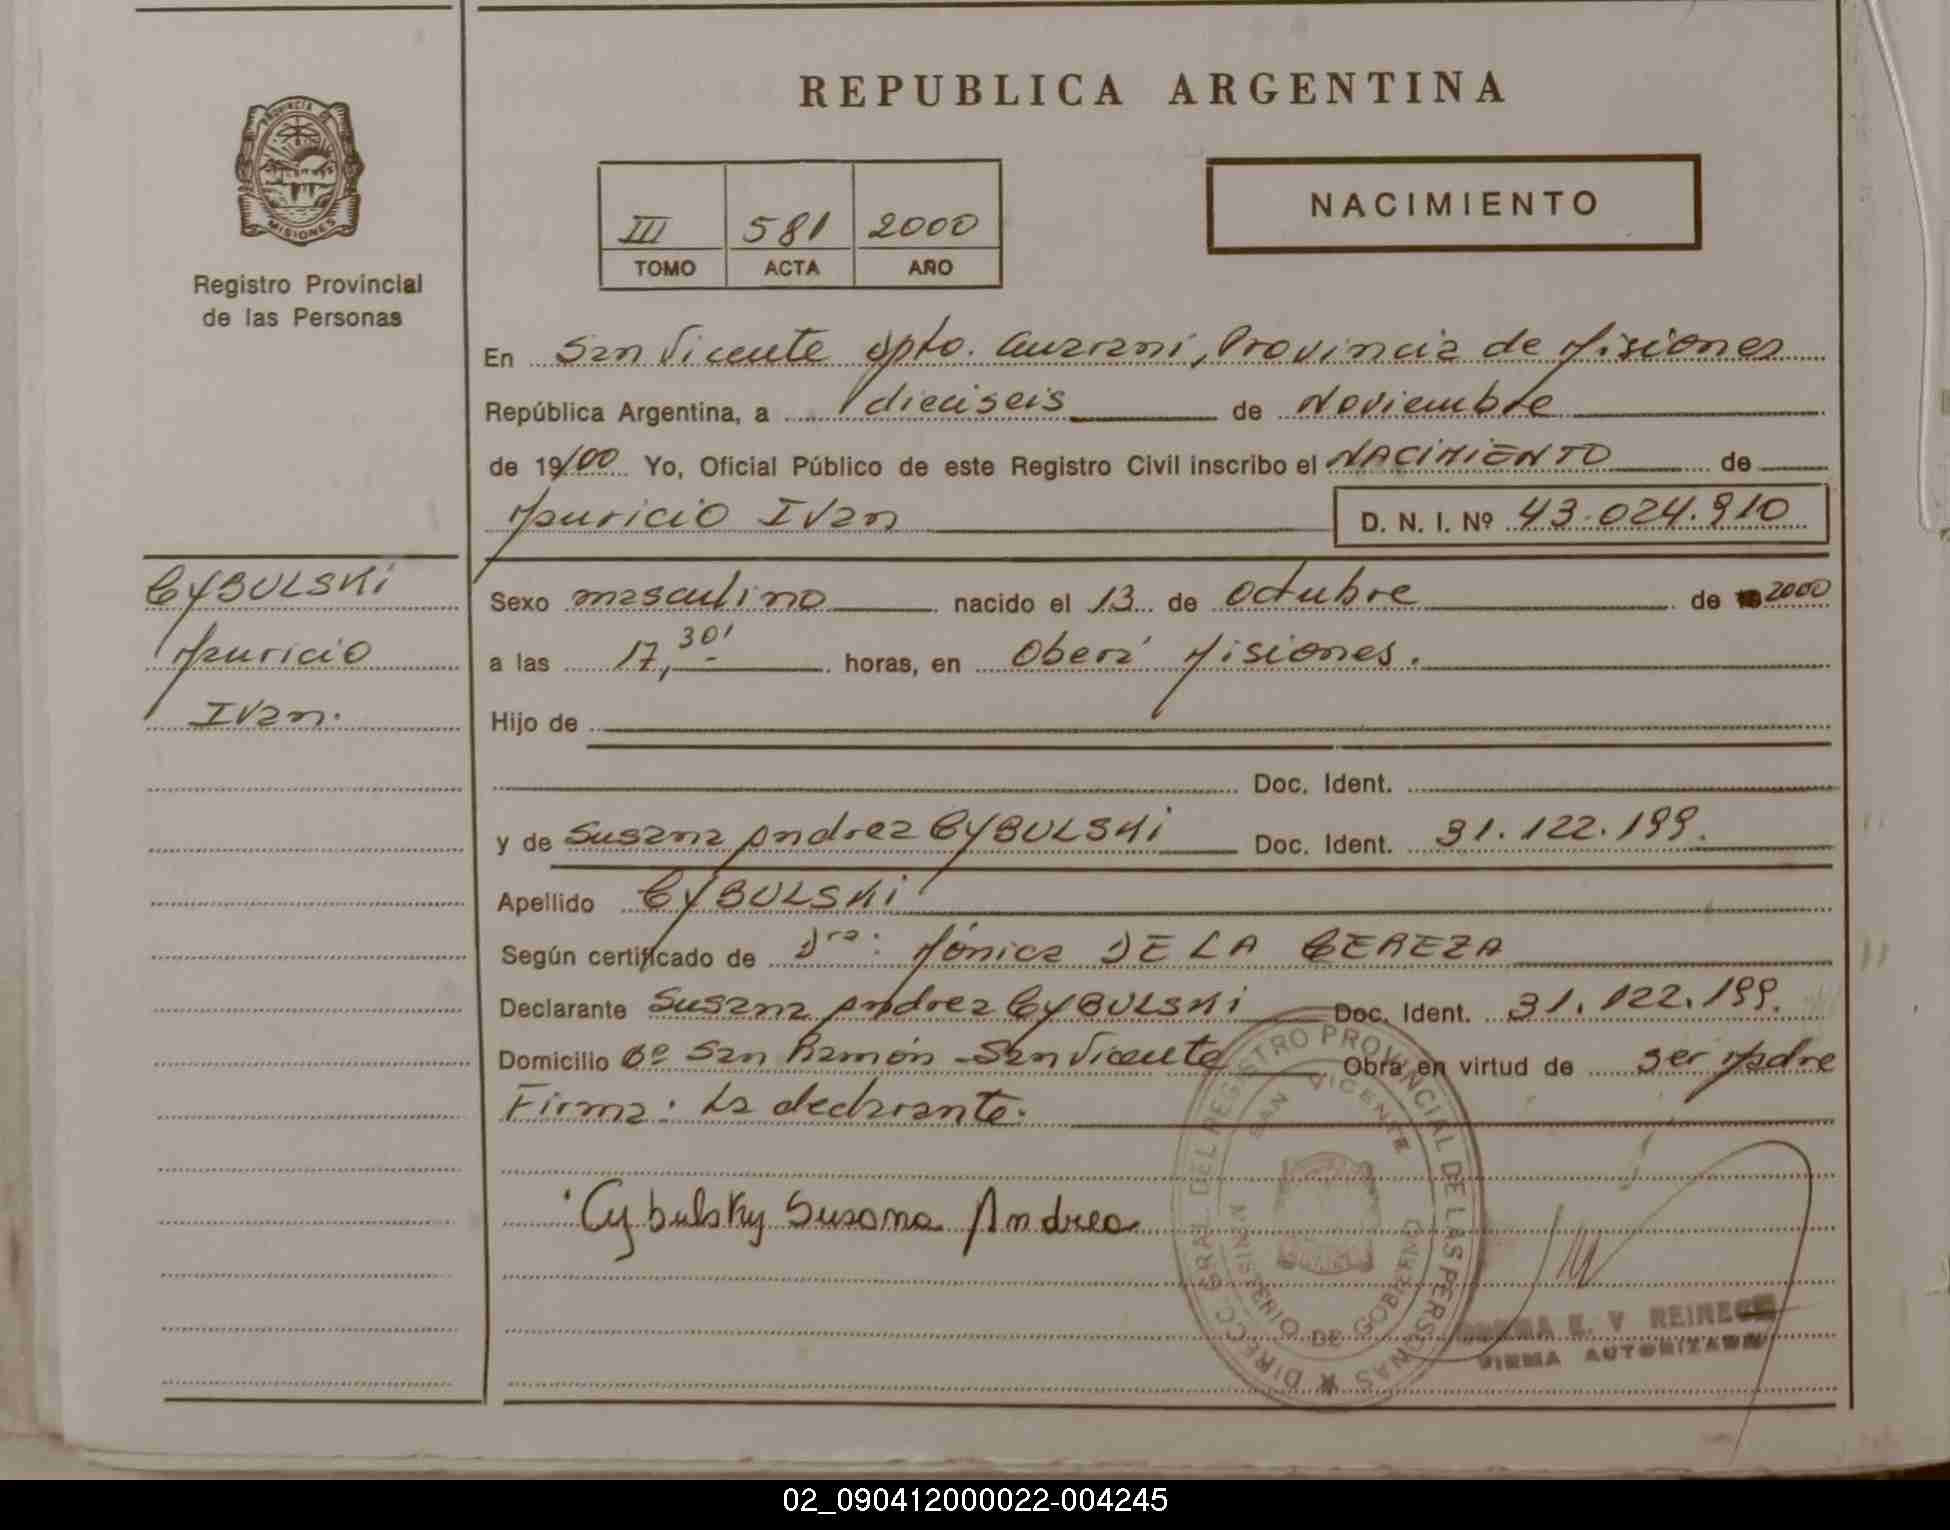 REPUBLICA ARGENTINA
PROVINCIA DE
MISIONES
Registro Provincial
de las Personas
III 581 2000
TOMO ACTA AÑO
NACIMIENTO
En San Vicente Dpto. Guarani, Provincia de Misiones
República Argentina, a dieciseis de Noviembre
de 19/00 Yo, Oficial Público de este Registro Civil inscribo el NACIMIENTO de
Mauricio Ivan D. N. I. Nº 43.024.910
CYBULSKI
Mauricio
Ivan.
Sexo masculino nacido el 13 de octubre de 2000
a las 17,30' horas, en Oberá Misiones.
Hijo de
Doc. Ident.
y de Susana Andrea CYBULSKI Doc. Ident. 31.122.199.
Apellido CYBULSKI
Según certificado de Dra: Mónica DE LA CEREZA
Declarante Susana Andrea CYBULSKI Doc. Ident. 31.122.199.
Domicilio Bº San Ramón - San Vicente Obra en virtud de ser Madre
Firma: La declarante.
Cybulsky Susana Andrea
DIRECC. GRAL. DEL REGISTRO PROVINCIAL DE LAS PERSONAS
SAN VICENTE
MINISTERIO DE GOBIERNO
E. V REINECK
FIRMA AUTORIZADA
02_090412000022-004245